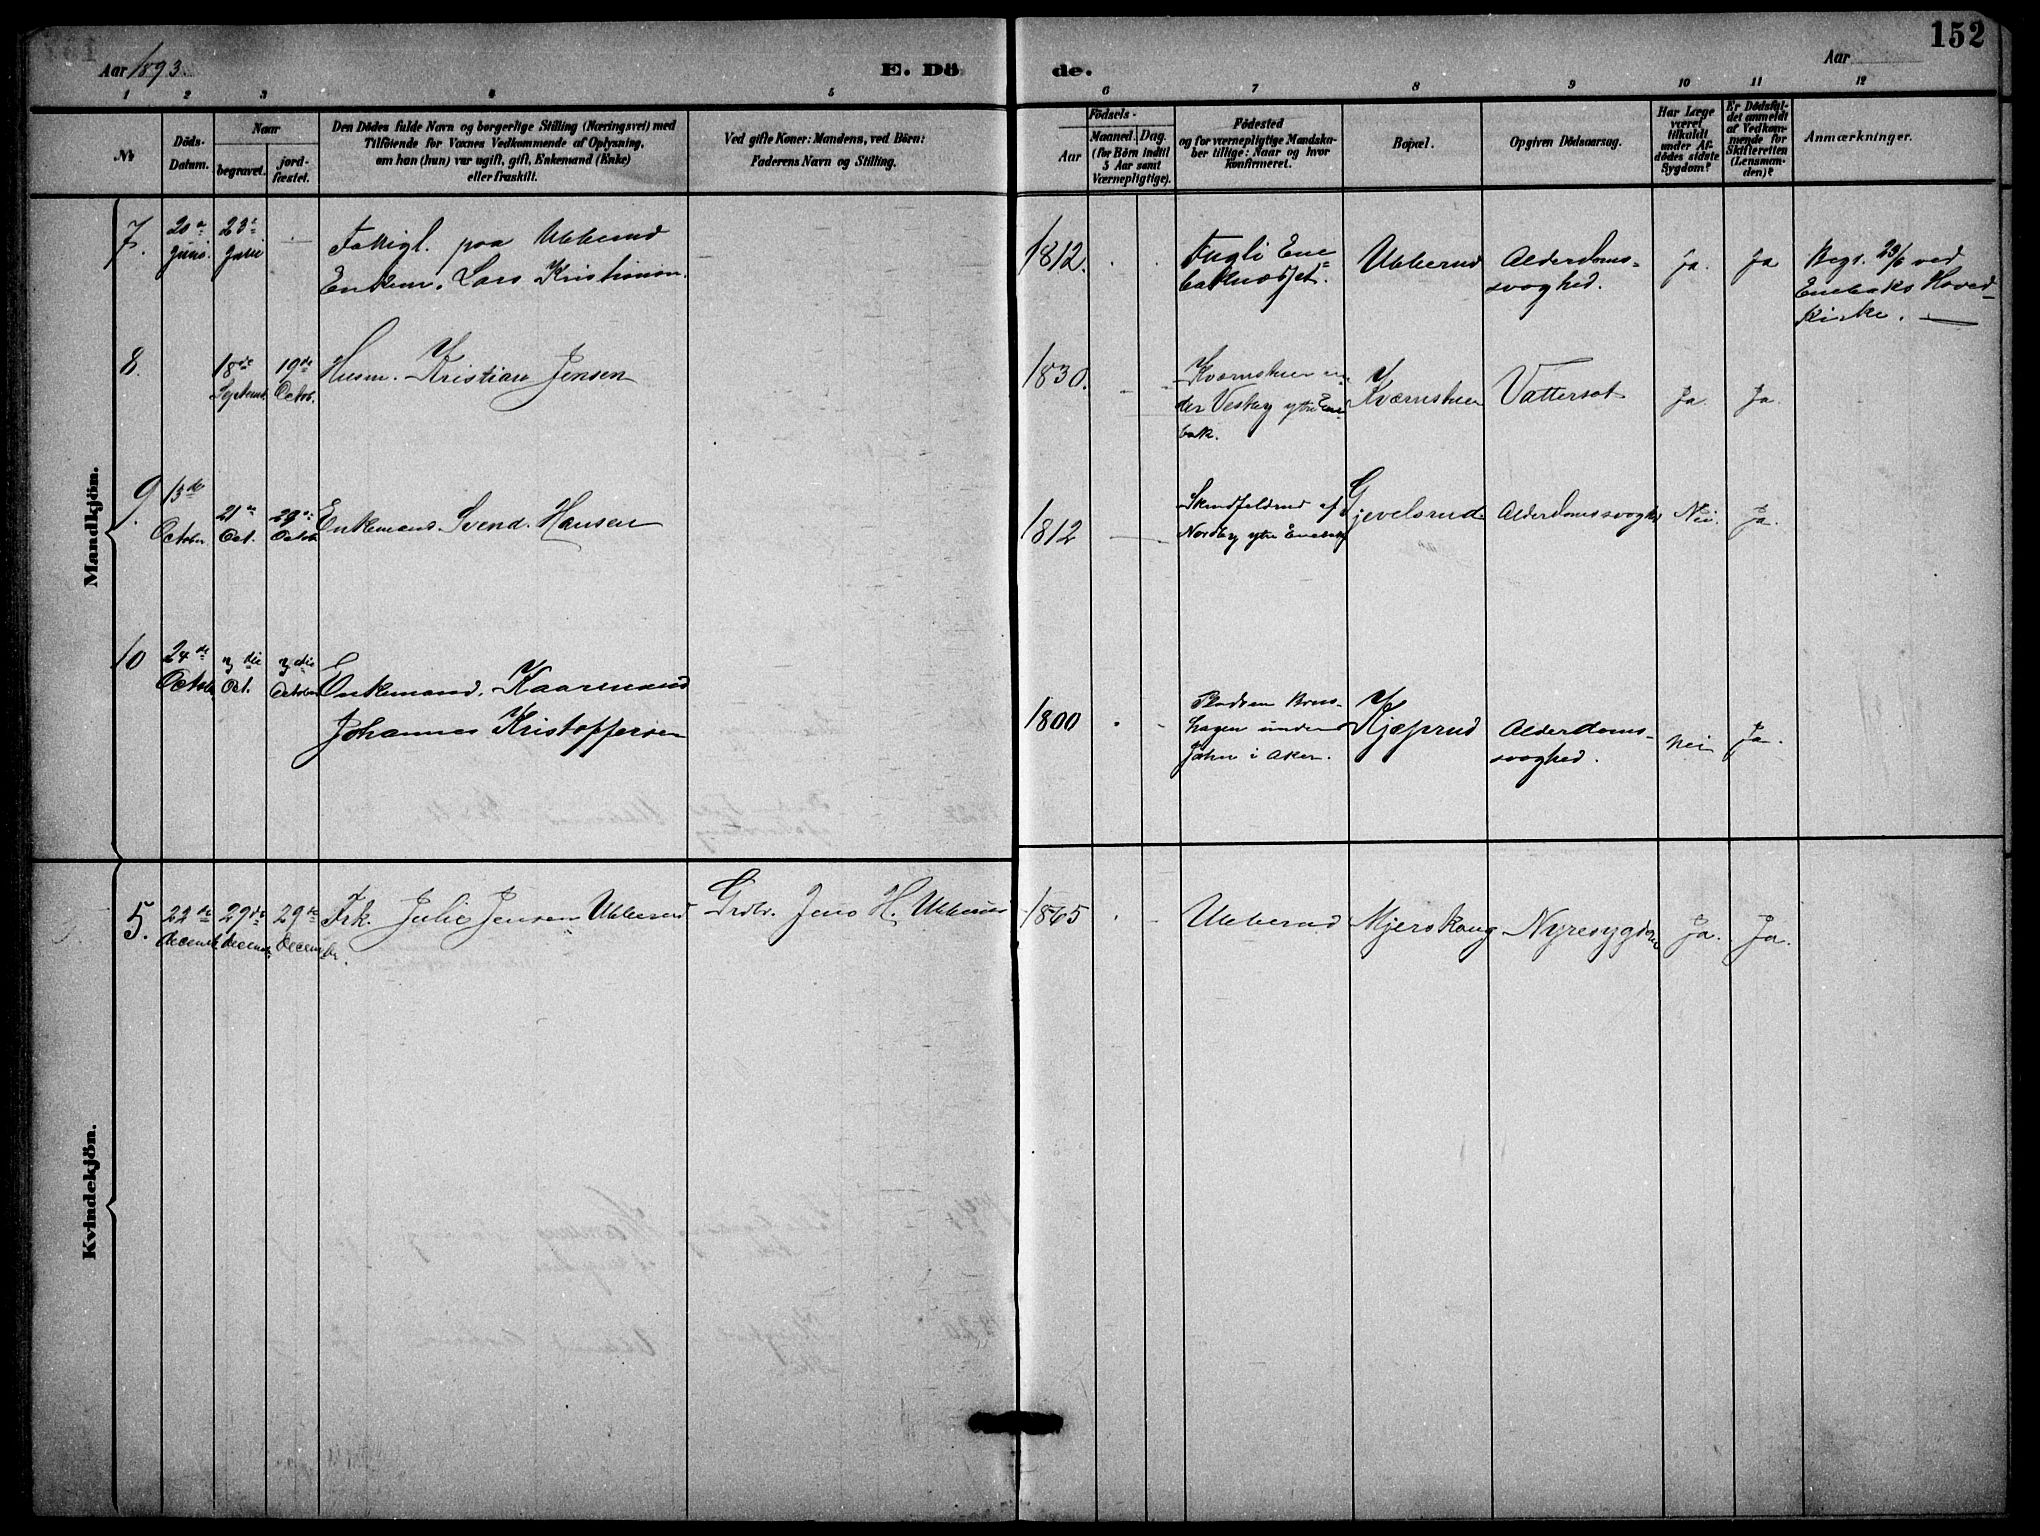 152
Aar 1893.
E. Dö
de.
Aar
1 2 3 4 5 6 7 8 9 10 11 12
No
Döds-
Datum.
Naar
begravet.
jord-
fæstet.
Den Dödes fulde Navn og borgerlige Stilling (Næringsvei) med
Tilföiende for Voxnes Vedkommende af Oplysning,
om han (hun) var ugift, gift, Enkemand (Enke)
eller fraskilt.
Ved gifte Koner: Mandens, ved Börn:
Faderens Navn og Stilling.
Födsels-
Aar
Maaned. Dag.
(for Börn indtil
5 Aar samt
Værnepligtige).
Födested
og for værnepligtige Mandska-
ber tillige: Naar og hvor
konfirmeret.
Bopæl.
Opgiven Dödsaarsag.
Har Læge
været
tilkaldt
under Af-
dödes sidste
Sygdom?
Er Dödsfal-
det anmeldt
af Vedkom-
mende for
Skifteretten
(Lensman-
den)?
Anmærkninger.
Mandkjön.
7.
20de
Juni.
23de
Enkem. Lars Kristiansen.
paa Ubberud
1812.
Ubberud
Alderdoms-
svaghed.
Ja.
Ja
Begr. 23/6 ved
Enebaks Hoved-
Kirke.
8.
18de
Septemb.
19de
Octob.
Husm. Kristian Jensen
1830.
Kværnstuen un-
der Vestby ytre Ene-
bak.
Kværnstuen
Vattersot
Ja.
Ja.
9.
13de
October
21de
Oct.
29de
Octob.
Enkemand Svend Hansen
1812
Nordby ytre Enebak
Gjevelsrud
Alderdomssvaghed
Nei.
Ja.
10
24de
October
Oct.
October
Enkemand, Kaarmand
Johannes Kristoffersen
1800
Pladsen
hagen under
i Aker.
Kjæprud
Alderdoms-
svaghed.
Nei
Ja.
Kvindekjön.
5.
22de
decemb.
29de
decemb.
29de
December.
Frk. Julie Jensen Ubberud
Grdbr. Jens H. Ubberud
1865
Ubberud
Mjerskaug
Nyresygdom
Ja.
Ja.